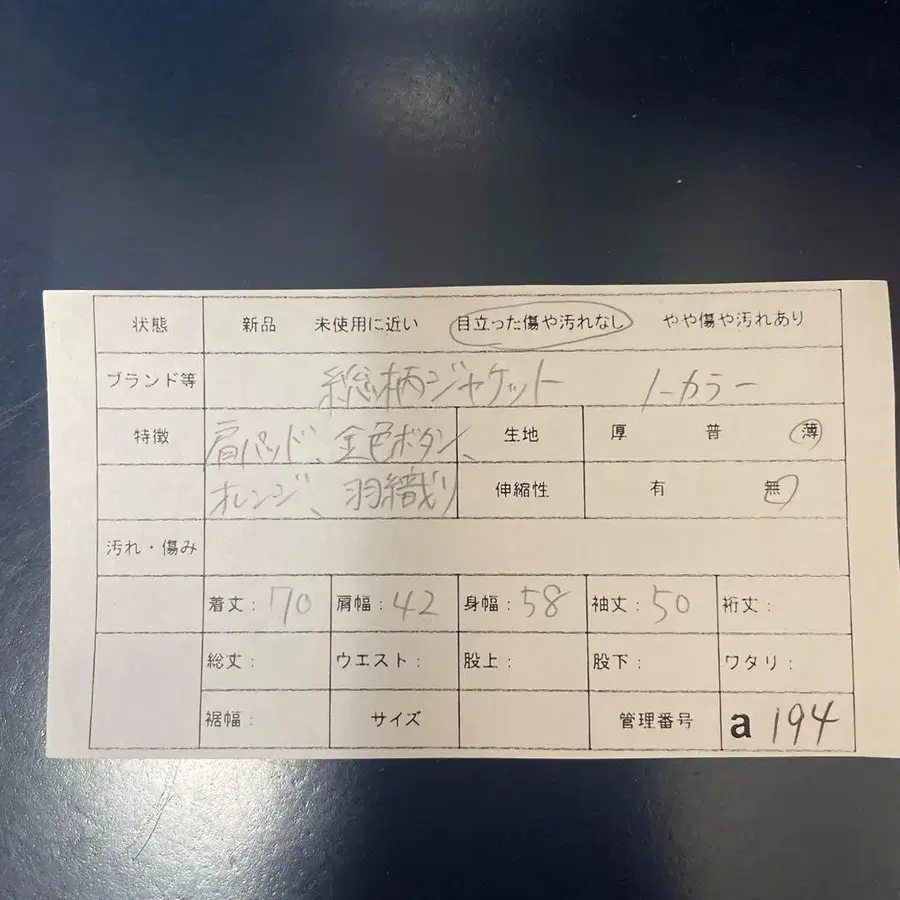 状態 新品 未使用に近い 目立った傷や汚れなし やや傷や汚れあり
ブランド等 総柄ジャケット ノーカラー
特徴 肩パッド、金色ボタン、 生地 厚 普 薄
オレンジ、羽織り 伸縮性 有 無
汚れ・傷み
着丈: 70 肩幅: 42 身幅: 58 袖丈: 50 裄丈:
総丈: ウエスト: 股上: 股下: ワタリ:
裾幅: サイズ 管理番号 a 194